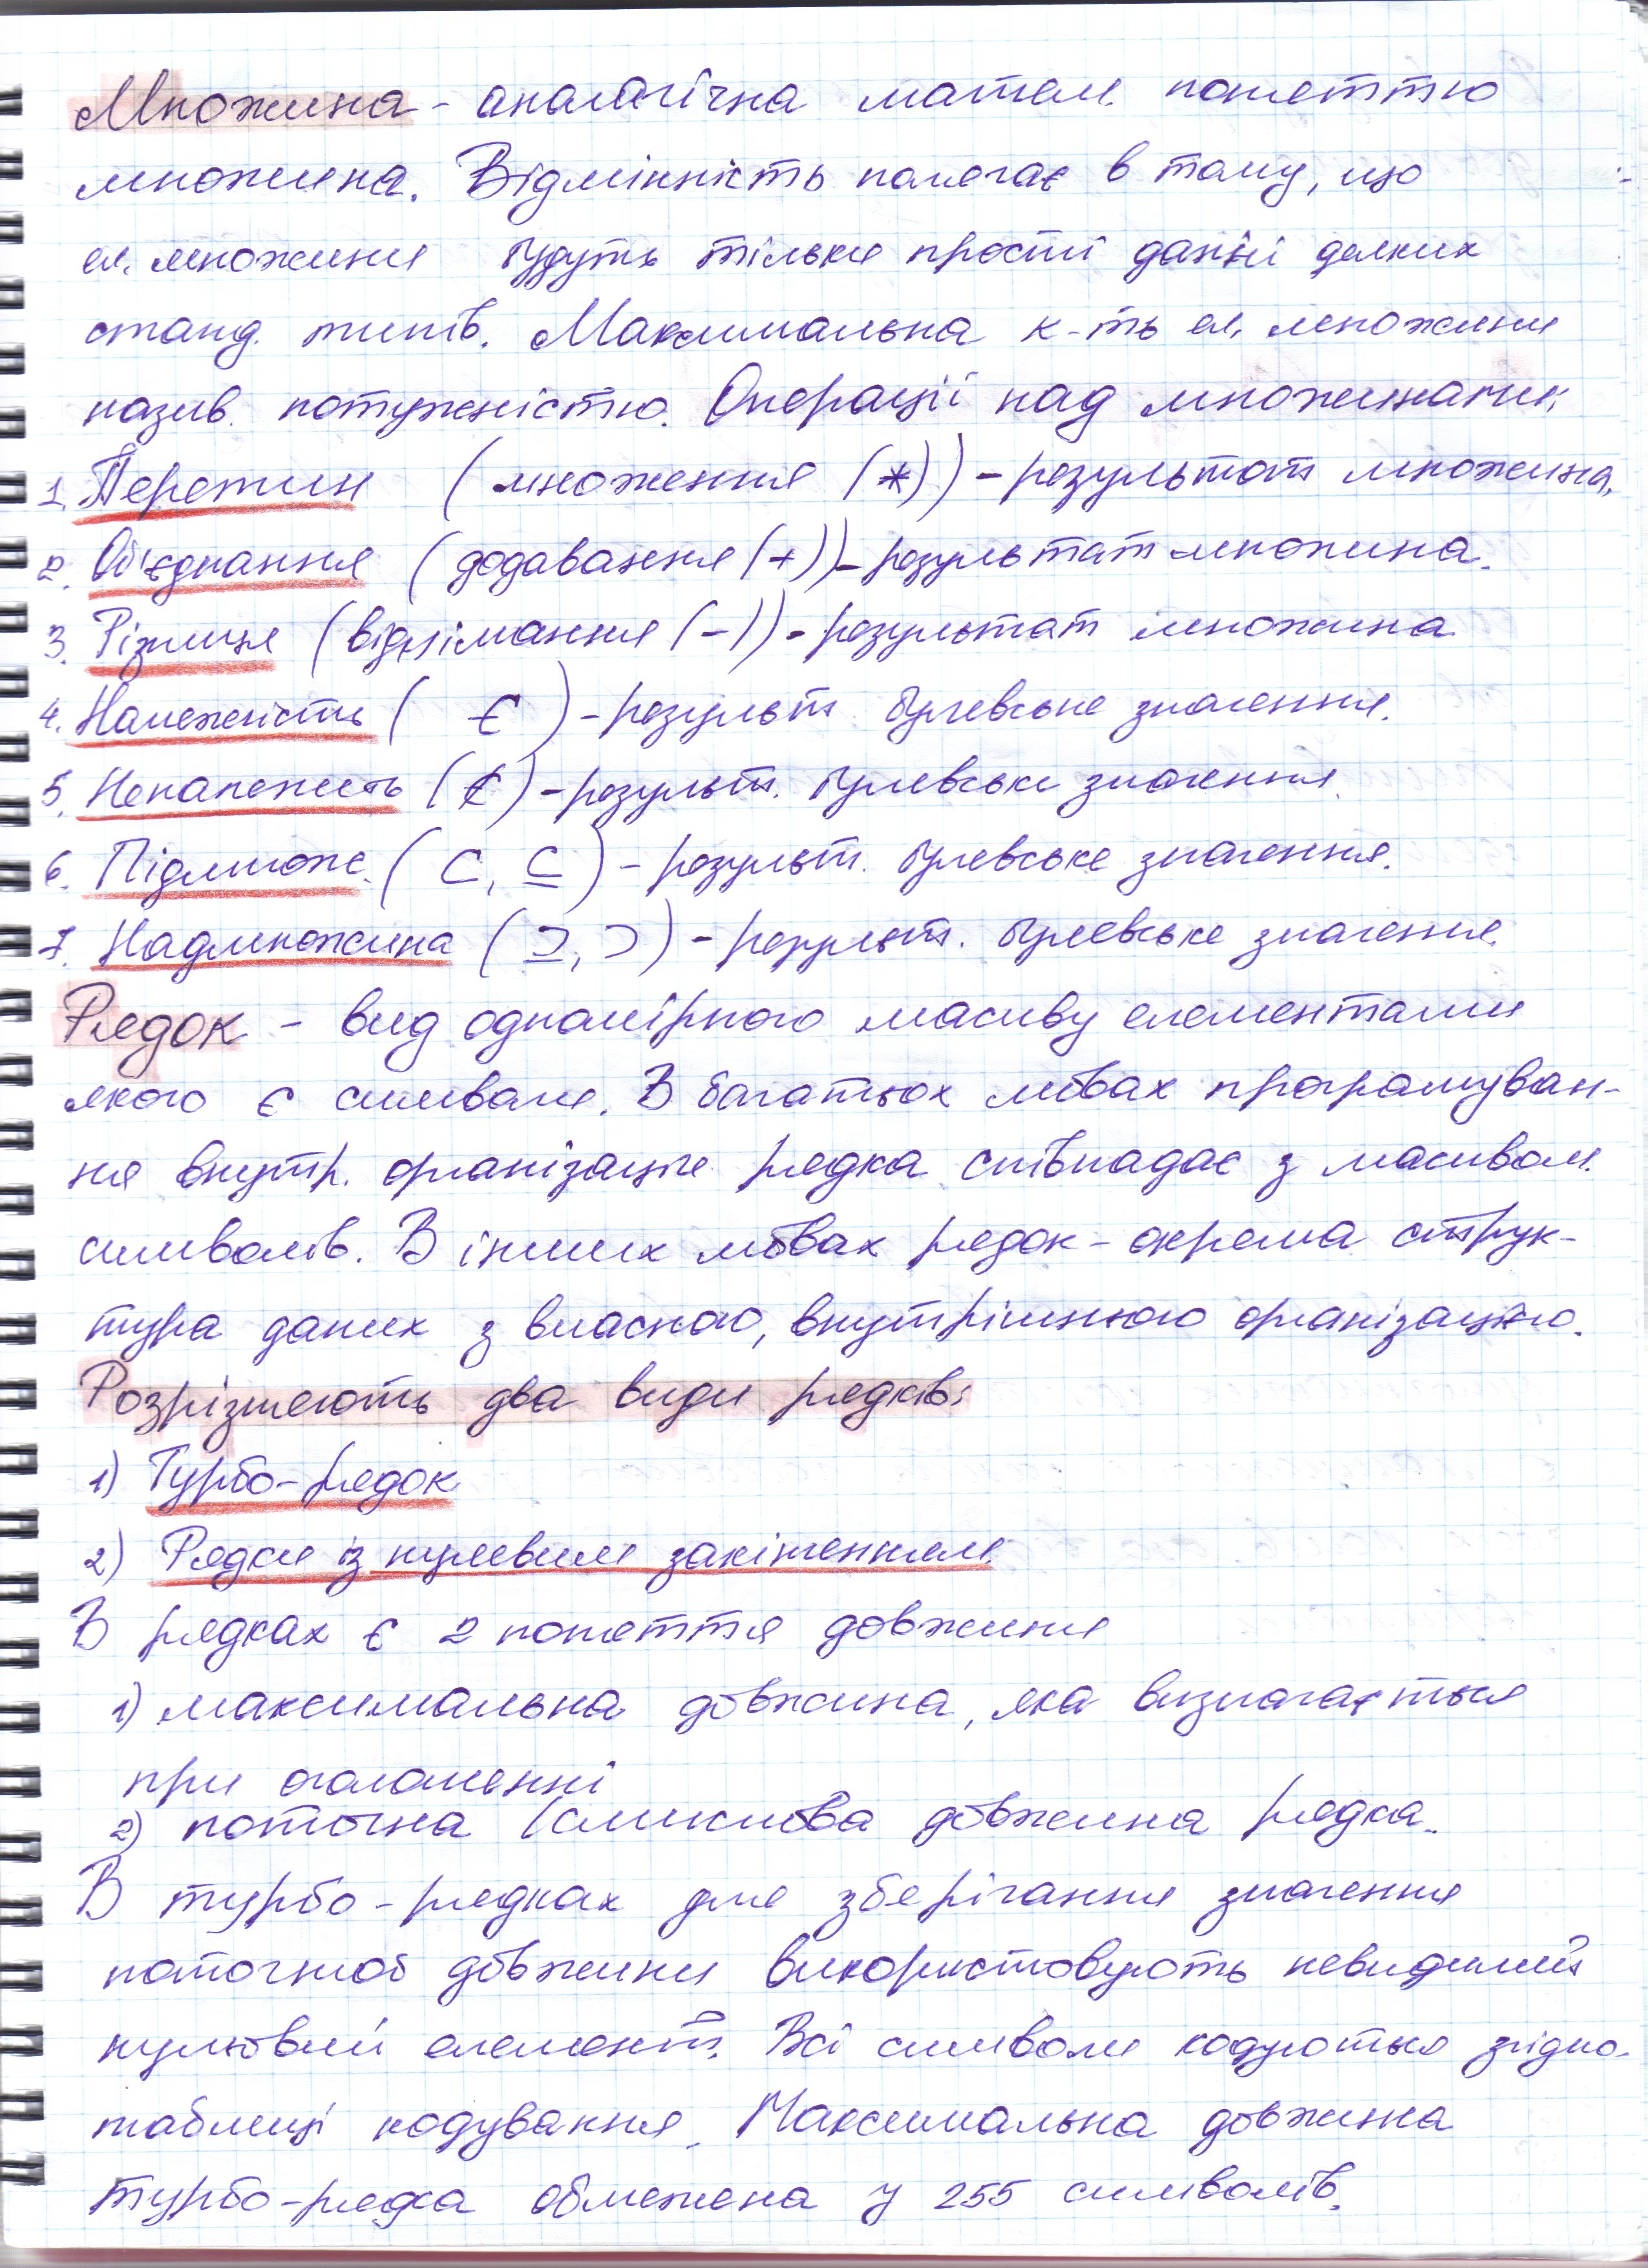 Множина - аналогічна матем. поняттю
множина. Відмінність полягає в тому, що
ел. множини будуть тільки прості данні деяких
станд. типів. Максимальна к-ть ел. множини
назив. потужністю. Операції над множинами:
1. Перетин (множення (*)) - результат множина.
2. Об'єднання (додавання (+)) - результат множина.
3. Різниця (віднімання (-)) - результат множина
4. Належність ( Є ) - результ. булевське значення.
5. Неналежність (∉) - результ. булевське значення.
6. Підмнож. ( ⊂, ⊆ ) - результ. булевське значення.
7. Надмножина ( ⊇, ⊃ ) - результ. булевське значення.
Рядок - вид одномірного масиву елементами
якого є символи. В багатьох мовах програмуван-
ня внутр. організація рядка співпадає з масивом
символів. В інших мовах рядок - окрема струк-
тура даних з власною, внутрішньою організацією.
Розрізняють два види рядків:
1) Турбо-рядок
2) Рядки із нулевим закінченням.
В рядках є 2 поняття довжини
1) максимальна довжина, яка визначається
при оголошенні
2) поточна (смислова довжина рядка.
В турбо-рядках для зберігання значення
поточної довжини використовують невидимий
нульовий елемент. Всі символи кодуються згідно
таблиці кодування. Максимальна довжина
турбо-рядка обмежена у 255 символів.